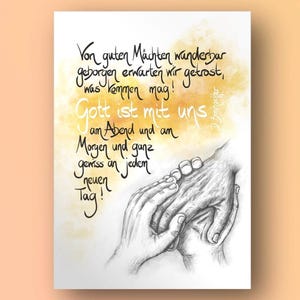 Von guten Mächten wunderbar
geborgen erwarten wir getrost,
was kommen mag!
Gott ist mit uns
am Abend und am
Morgen und ganz
gewiss an jedem
neuen
Tag!